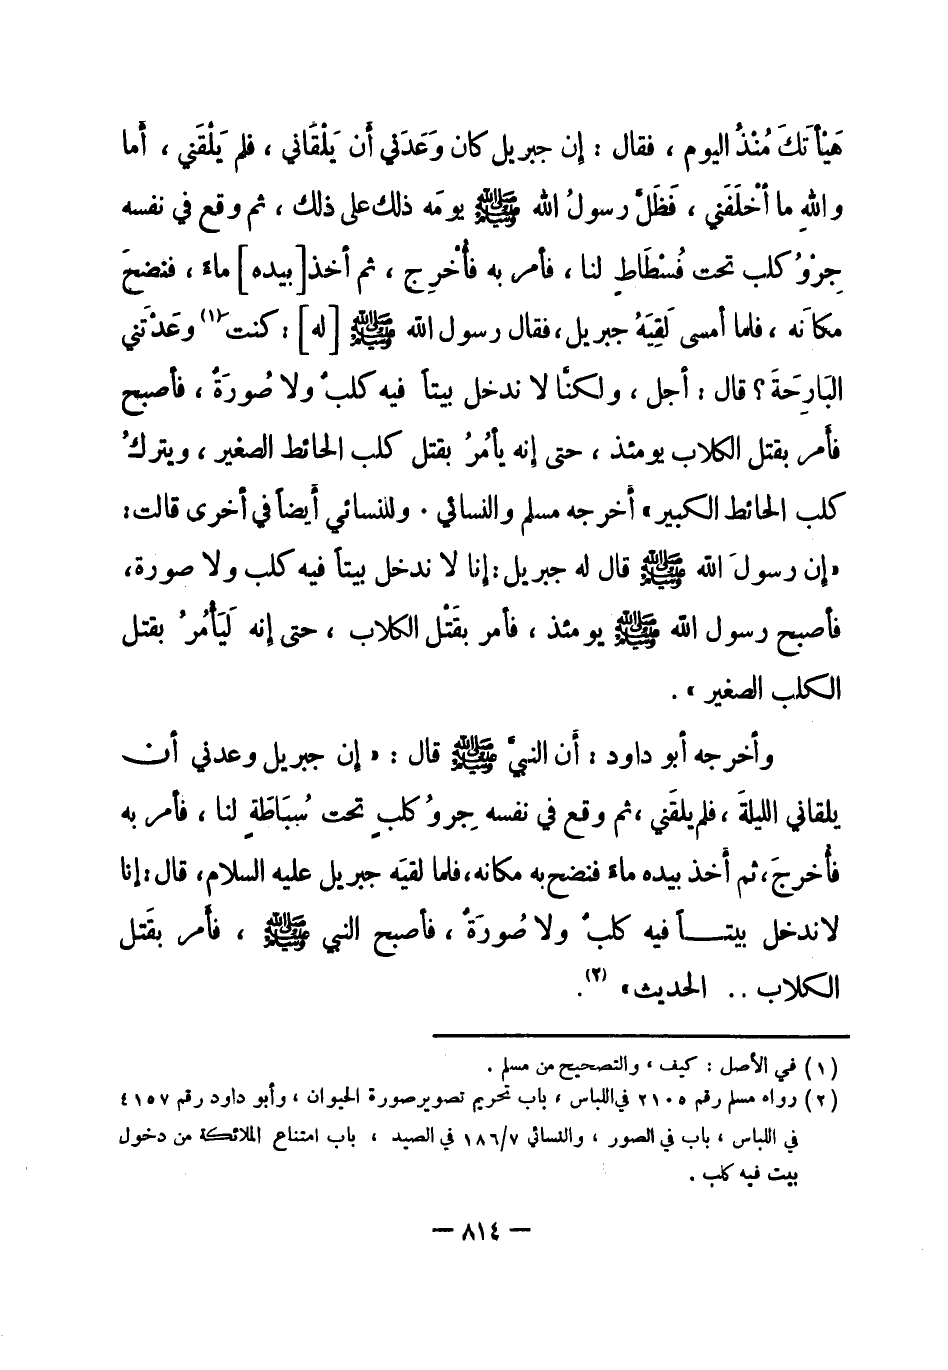 هَيْأَتَكَ مُنْذُ اليوم ، فقال : إن جبريل كان وَعَدَني أن يَلْقَاني ، فلم يَلْقَني ، أما
واللهِ ما أخْلَفَني ، فَظَلَّ رسولُ الله ﷺ يومَه ذلك على ذلك ، ثم وقع في نفسه
جِرْوُ كلب تحت فُسْطَاطٍ لنا ، فأمر به فأُخْرِج ، ثم أخذ [بيده] ماءً ، فنضحَ
مكانَه ، فلما أمسى لَقِيَهُ جبريل، فقال رسول الله ﷺ [له] : كنتَ (١) وعَدْتَني
البَارِحَةَ ؟ قال : أجل ، ولكنَّا لا ندخل بيتاً فيه كلبٌ ولا صُورَةٌ ، فأصبح
فأَمر بقتل الكلاب يومئذ ، حتى إنه يأمُرُ بقتل كلب الحائط الصغير ، ويتركُ
كلب الحائط الكبير » أخرجه مسلم والنسائي . وللنسائي أيضاً في أخرى قالت :
«إن رسولَ الله ﷺ قال له جبريل : إنا لا ندخل بيتاً فيه كلب ولا صورة،
فأصبح رسول الله ﷺ يومئذ ، فأمر بقَتْل الكلاب ، حتى إنه لَيَأْمُرُ بقتل
الكلب الصغير » .
وأخرجه أبو داود : أن النبيَّ ﷺ قال : « إن جبريل وعدني أن
يلقاني الليلةَ ، فلم يلقَني ، ثم وقع في نفسه جِروُ كلبٍ تحت سُبَاطَةٍ لنا ، فأمر به
فأُخرجَ، ثم أخذ بيده ماءً فنضح به مكانه، فلما لقيَه جبريل عليه السلام، قال : إنا
لا ندخل بيتــاً فيه كلبٌ ولا صُورَةٌ ، فأصبح النبي ﷺ ، فأَمر بقَتل
الكلاب .. الحديث» (٢).
(١) في الأصل : كيف ، والتصحيح من مسلم .
(٢) رواه مسلم رقم ٢١٠٥ في اللباس ، باب تحريم تصوير صورة الحيوان ، وأبو داود رقم ٤١٥٧
في اللباس ، باب في الصور ، والنسائي ١٨٦/٧ في الصيد ، باب امتناع الملائكة من دخول
بيت فيه كلب .
— ٨١٤ —